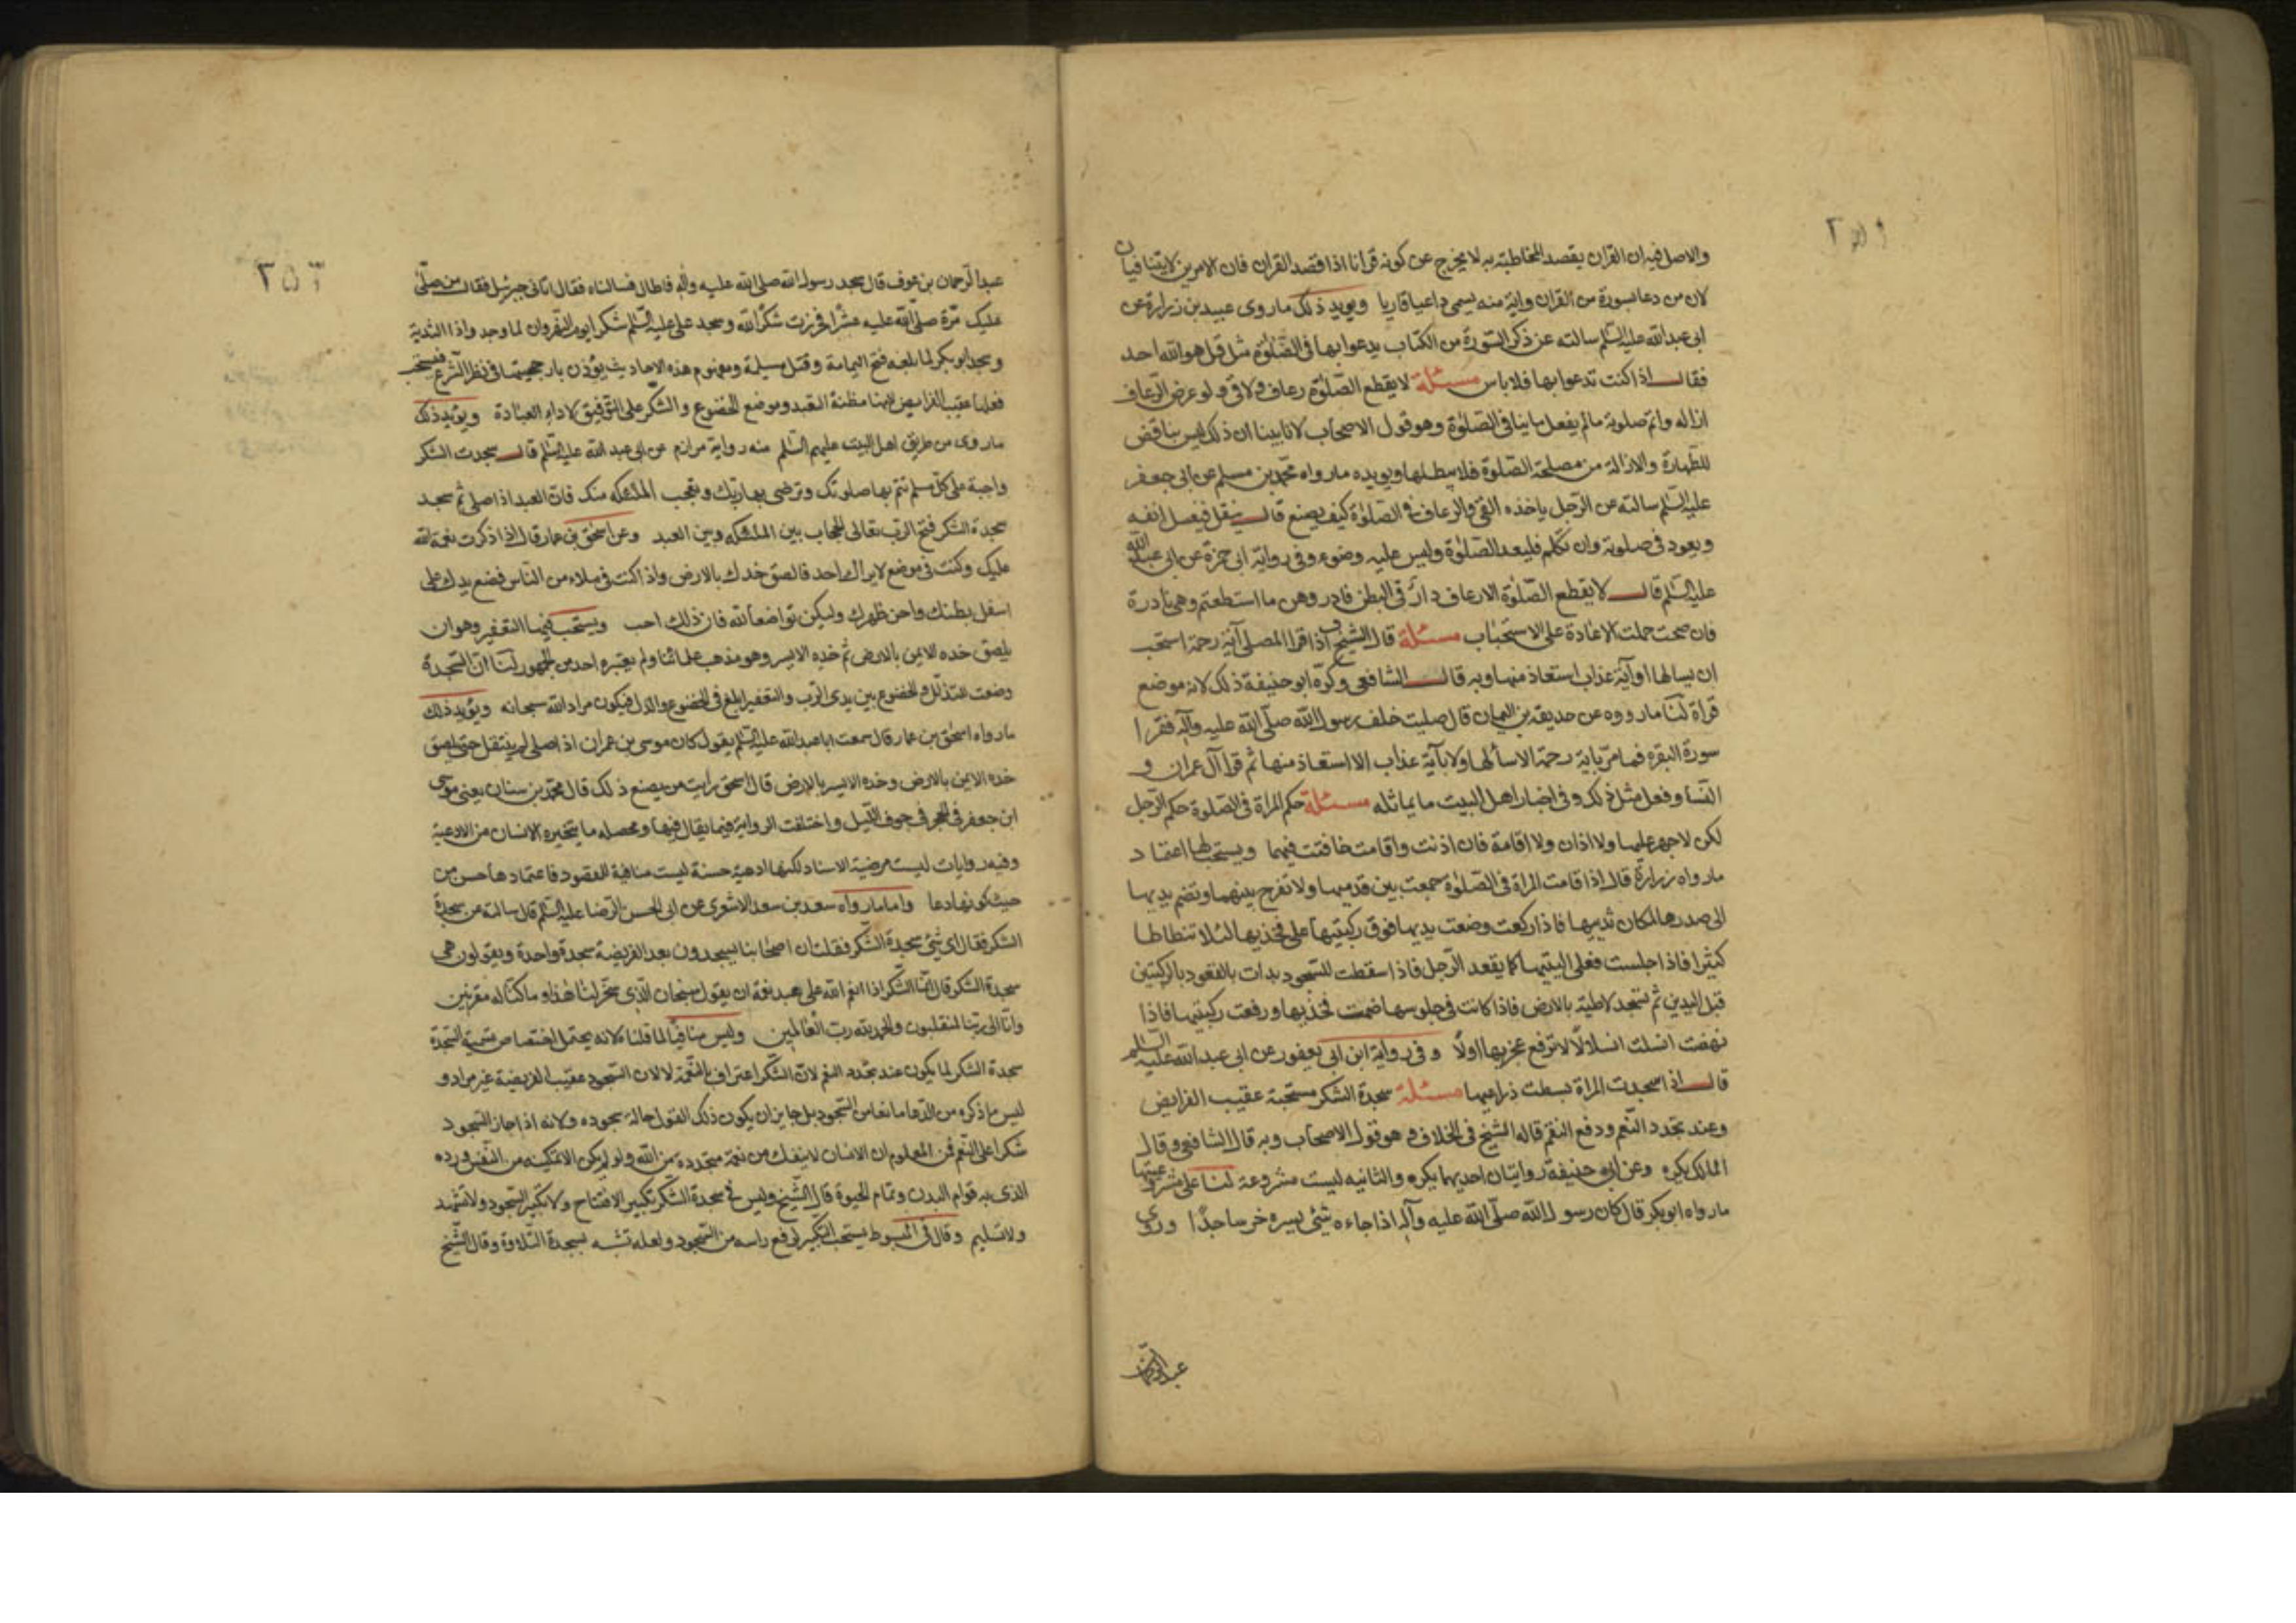 والاصل فيه ان القران يقصد المخاطبة به لا يخرج عن كونه قرانا اذا قصد القران فان الامرين لا يتنافيان
لان من دعا بسورة من القران واية منه يسمى داعيا قاريا ويويد ذلك ما روى عبيد بن زرارة عن
ابى عبد الله عليه السّلم سالته عن ذكر السّورة من الكتاب يدعوا بها فى الصّلوة مثل قل هو الله احد
فقال اذا كنت تدعوا بها فلا باس مسئلة لا يقطع الصّلوة رعاف ولا قى ولو عرض الرّعاف
ازاله واتم صلوته ما لم يفعل ما ينافى الصّلوة وهو قول الاصحاب لانا بينا ان ذلك ليس بناقض
للطّهارة والازالة من مصلحة الصّلوة فلا يبطلها ويويده ما رواه محمّد بن مسلم عن ابى جعفر
عليه السّلم سالته عن الرّجل ياخذه القى والرعاف فى الصلوة كيف يصنع قال ينفتل فيغسل انفه
ويعود فى صلوته وان تكلم فليعد الصّلوة وليس عليه وضوء وفى رواية ابى حمزة عن ابى عبد الله
عليه السّلم قال لا يقطع الصّلوة الا رعاف وازّ فى البطن فادروهن ما استطعتم وهى نادرة
فان صحت حملت الاعادة على الاستحباب مسئلة قال الشّيخ ره اذا قرا المصلى آية رحمة استحب
ان يسالها او آية عذاب استعاذ منها وبه قال الشافعى وكرّه ابو حنيفة ذلك لانه موضع
قراة لنا ما رووه عن حذيفة بن اليمان قال صليت خلف رسول الله صلّى الله عليه وآله فقرا
سورة البقره فما مرّ باية رحمة الا سألها ولا بآية عذاب الا استعاذ منها ثم قرا آل عمران و
النّسا وفعل مثل ذلك وفى اخبار اهل البيت ما يماثله مسئلة حكم المراة فى الصّلوة حكم الرّجل
لكن لا جهر عليها ولا اذان ولا اقامة فان اذنت واقامت خافتت فيهما ويستحب لها اعتماد
ما رواه زرارة قال اذا قامت المراة فى الصّلوة جمعت بين قدميها ولا تفرج بينهما وتضم يديها
الى صدرها لمكان ثدييها فاذا ركعت وضعت يديها فوق ركبتيها على فخذيها لئلا تتطاطا
كثيرا فاذا جلست فعلى اليتيها كما يقعد الرّجل فاذا سقطت للسّجود بدات بالقعود بالركبتين
قبل اليدين ثم تسجد لاطية بالارض فاذا كانت فى جلوسها ضمت فخذيها ورفعت ركبتيها فاذا
نهضت انسلت انسلالا لا ترفع عجزيها اولا وفى رواية ابن ابى يعفور عن ابى عبد الله عليه السّلم
قال اذا سجدت المراة بسطت ذراعيها مسئلة سجدة الشكر مستحبة عقيب الفرايض
وعند تجدد النّعم ودفع النقم قاله الشيخ فى الخلاف وهو قول الاصحاب وبه قال الشافعى وقال
المالك يكره وعن ابى حنيفة روايتان احديهما يكره والثانيه ليست مشروعة لنا على شرعيتها
ما رواه ابو بكر قال كان رسول الله صلّى الله عليه وآله اذا جاءه شئ يسره خر ساجدًا وروى
عبد الرّحمان
٢٥٢
عبد الرّحمان بن عوف قال سجد رسول الله صلى الله عليه واله فاطال فسالناه فقال اتانى جبرئيل فقال من صلّى
عليك مرّة صلّى الله عليه عشرا فخررت شكرا لله وسجد على عليه السّلم شكرا يوم النّهروان لما وجد واذا الثدية
وسجد ابو بكر لما بلغه فتح اليمامة وقتل مسيلمة ومفهوم هذه الاحاديث يؤذن بارجحيتها فى نظر الشّرع فيستحب
فعلها عقيب الفرايض لانها مظنة التعبد وموضع الخضوع والشّكر على التّوفيق لاداء العبادة ويؤيد ذلك
ما روى من طريق اهل البيت عليهم السّلم منه رواية مرازم عن ابى عبد الله عليه السّلم قال سجدت الشكر
واجبة على كلّ مسلم تتم بها صلوتك وترضى بها ربّك وتعجب الملئكه منك فان العبد اذا صلى ثم سجد
سجدة الشكر فتح الرب تعالى الحجاب بين الملئكه وبين العبد وعن اسحق بن عمار قال اذا ذكرت نعمة الله
عليك وكنت فى موضع لا يراك احد فالصق خدك بالارض واذا كنت فى ملاء من النّاس فضع يدك على
اسفل بطنك واحن ظهرك وليكن تواضعا لله فان ذلك احب ويستحب فيها التعفير وهو ان
يلصق خده الايمن بالارض ثم خده الايسر وهو مذهب علمائنا ولم يعتبره احد من الجمهور لنا انّ السّجدة
وضعت للتذلل والخضوع بين يدى الرّب والتعفير ابلغ فى الخضوع والذل فيكون مراد الله سبحانه ويؤيد ذلك
ما رواه اسحق بن عمار قال سمعت ابا عبد الله عليه السّلم يقول كان موسى بن عمران اذا صلى لم ينفتل حتى يلصق
خده الايمن بالارض وخده الايسر بالارض قال اسحق رايت من يصنع ذلك قال محمّد بن سنان يعنى موسى
ابن جعفر فى الحجر فى جوف اللّيل واختلفت الرواية فيما يقال فيها ومحصله ما يتخيره الانسان من الادعية
وفيه روايات ليست مرضية الاسناد لكنها ادعية حسنة ليست منافية للمقصود فاعتمادها حسن من
حيث كونها دعا واما ما رواه سعد بن سعد الاشعرى عن ابى الحسن الرّضا عليه السّلم قال سالته عن سجدة
الشكر فقال اى شئ سجدة الشّكر فقلت ان اصحابنا يسجدون بعد الفريضة سجدة واحدة ويقولون هى
سجدة الشكر قال انّما الشّكر اذا انعم الله على عبد نعمة ان يقول سبحان الّذى سخّر لنا هذا وما كنّا له مقرنين
وانّا الى ربّنا لمنقلبون والحمد لله ربّ العالمين وليس منافيا لما قلناه لانه يحتمل اختصاص تسمية السّجدة
سجدة الشكر لما يكون عند تجدد النعم لانّ الشّكر اعتراف بالنّعمة لا لان السّجود عقيب الفريضة غير مراد و
ليس ما ذكره من الدّعا مانعا من السّجود بل جايز ان يكون ذلك القول حالة سجوده ولانه اذا جاز السّجود
شكرا على النّعم فمن المعلوم ان الانسان لا ينفك من نعمة متجددة من الله ولو لم يكن الا تمكينه من النّفس ورده
الذى به قوام البدن وتمام الحيوة قال الشّيخ وليس فى سجدة الشّكر تكبير الافتتاح ولا تكبير السّجود ولا تشهد
ولا تسليم وقال فى المبسوط يستحب التّكبير لرفع راسه من السّجود ولعله تشبه بسجدة التّلاوة وقال الشّيخ